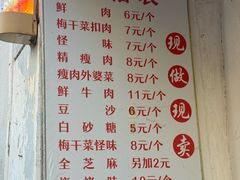 鲜 肉 6元/个
梅干菜扣肉 7元/个
怪 味 7元/个
精瘦肉 8元/个
瘦肉外婆菜 8元/个
鲜牛肉 11元/个
豆 沙 6元/个
白砂糖 5元/个
梅干菜怪味 8元/个
全芝麻 另加2元
现做现卖